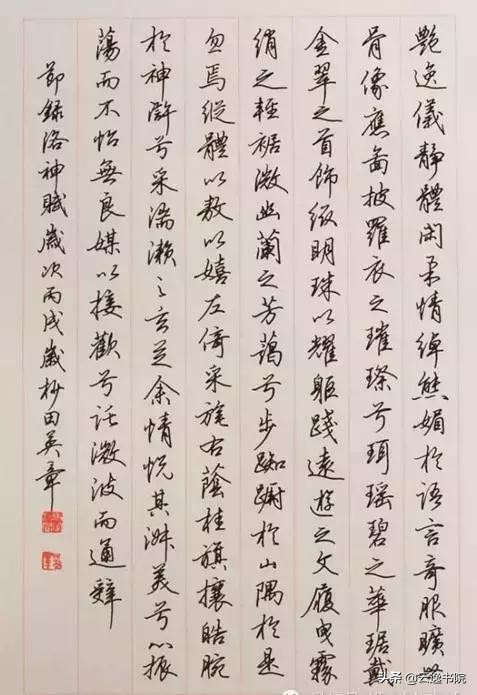 艷逸儀靜體閑柔情綽態媚於語言奇服曠世
骨像應圖披羅衣之璀璨兮珥瑤碧之華琚戴
金翠之首飾綴明珠以耀軀踐遠遊之文履曳霧
綃之輕裾微幽蘭之芳藹兮步踟躕於山隅於是
忽焉縱體以敖以嬉左倚采旄右蔭桂旗攘皓腕
於神滸兮采湍瀨之玄芝余情悅其淑美兮心振
蕩而不怡無良媒以接歡兮託微波而通辭
節錄洛神賦歲次丙戌歲杪田英章
头条 @云逸书院